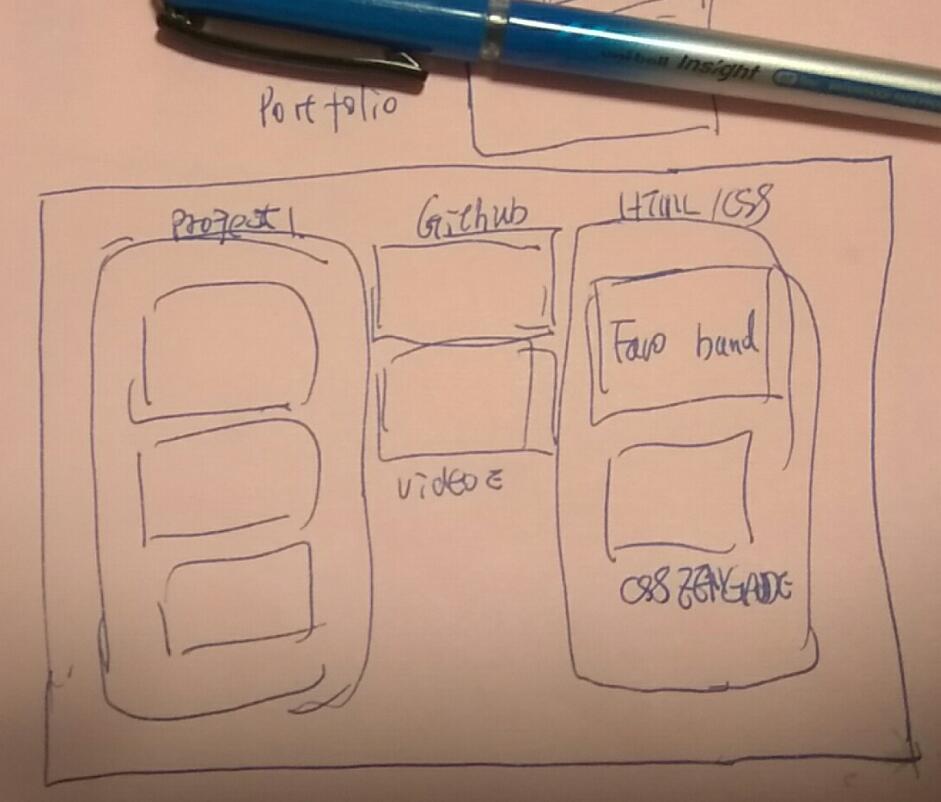 insight
Portfolio
Project 1
Github
HTML/CSS
Favo band
Video
CSS ZENGADE